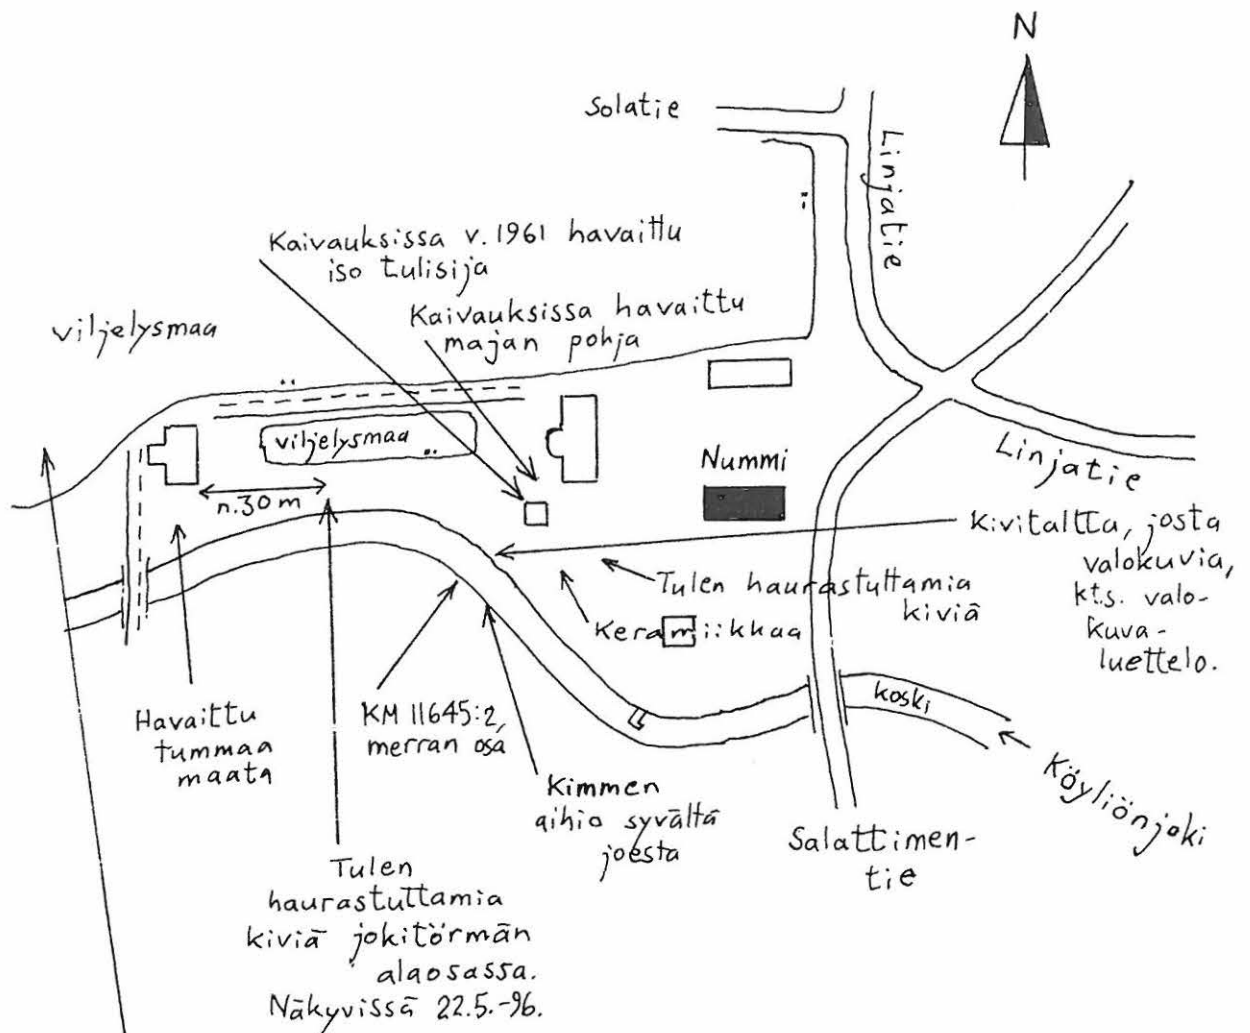 N
Solatie
Linjatie
Kaivauksissa v. 1961 havaittu
iso tulisija
Kaivauksissa havaittu
majan pohja
viljelysmaa
viljelysmaa
n. 30 m
Nummi
Linjatie
Kivitaltta, josta
valokuvia,
kts. valo-
kuva-
luettelo.
Tulen haurastuttamia
kiviä
Keramiikkaa
Havaittu
tummaa
maata
KM 11645:2,
merran osa
Kimmen
aihio syvältä
joesta
koski
Köyliönjoki
Salattimen-
tie
Tulen
haurastuttamia
kiviä jokitörmän
alaosassa.
Näkyvissä 22.5.-96.